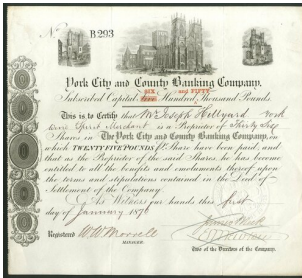 No B293
York City and County Banking Company.
SIX AND FIFTY
Subscribed Capital Five Hundred Thousand Pounds.
This is to Certify that Mr Joseph Hillyard York
Wine Spirit Merchant is a Proprietor of Thirty Six
Shares in The York City and County Banking Company, on
which TWENTY FIVE POUNDS Pr Share have been paid; and
that as the Proprietor of the said Shares, he has become
entitled to all the benefits and emoluments thereof upon
the terms and stipulations contained in the Deed of
Settlement of the Company.
As Witness our hands this first
day of January 1876
Registered
MANAGER.
Two of the Directors of the Company.